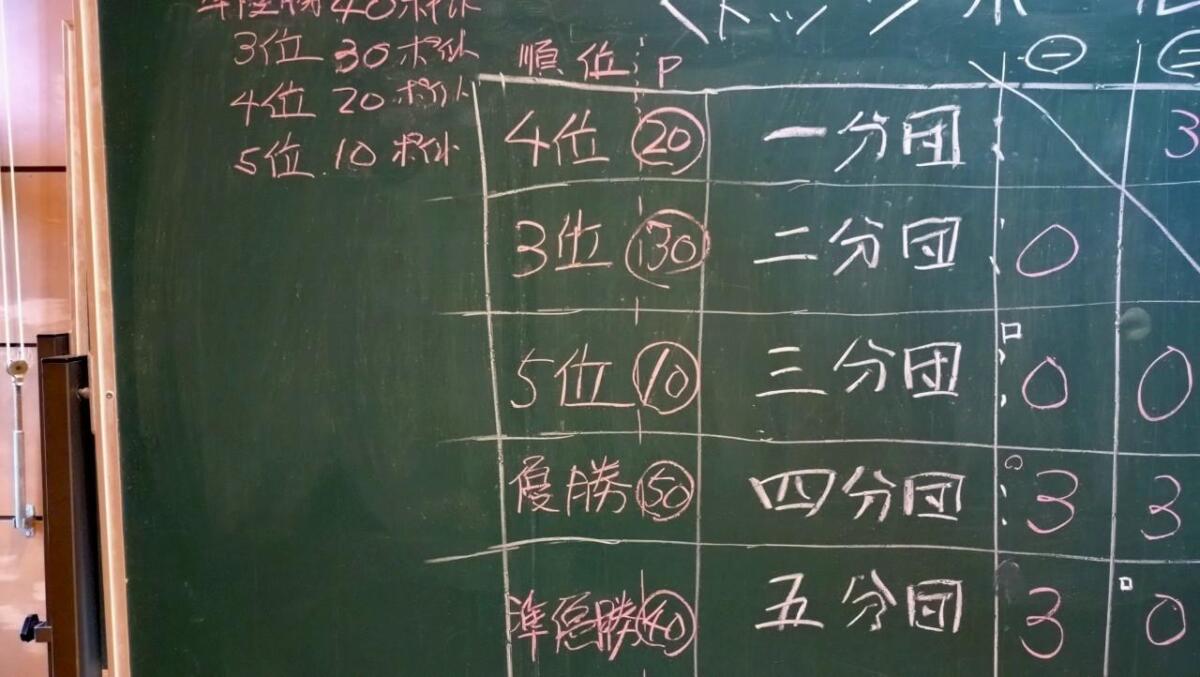 準優勝 40ポイント
3位 30ポイント
4位 20ポイント
5位 10ポイント
ドッジボール
順位 P ㊀ ㊁
4位 20 一分団 3
3位 30 二分団 0
5位 10 三分団 0 0
優勝 50 四分団 3 3
準優勝 40 五分団 3 0